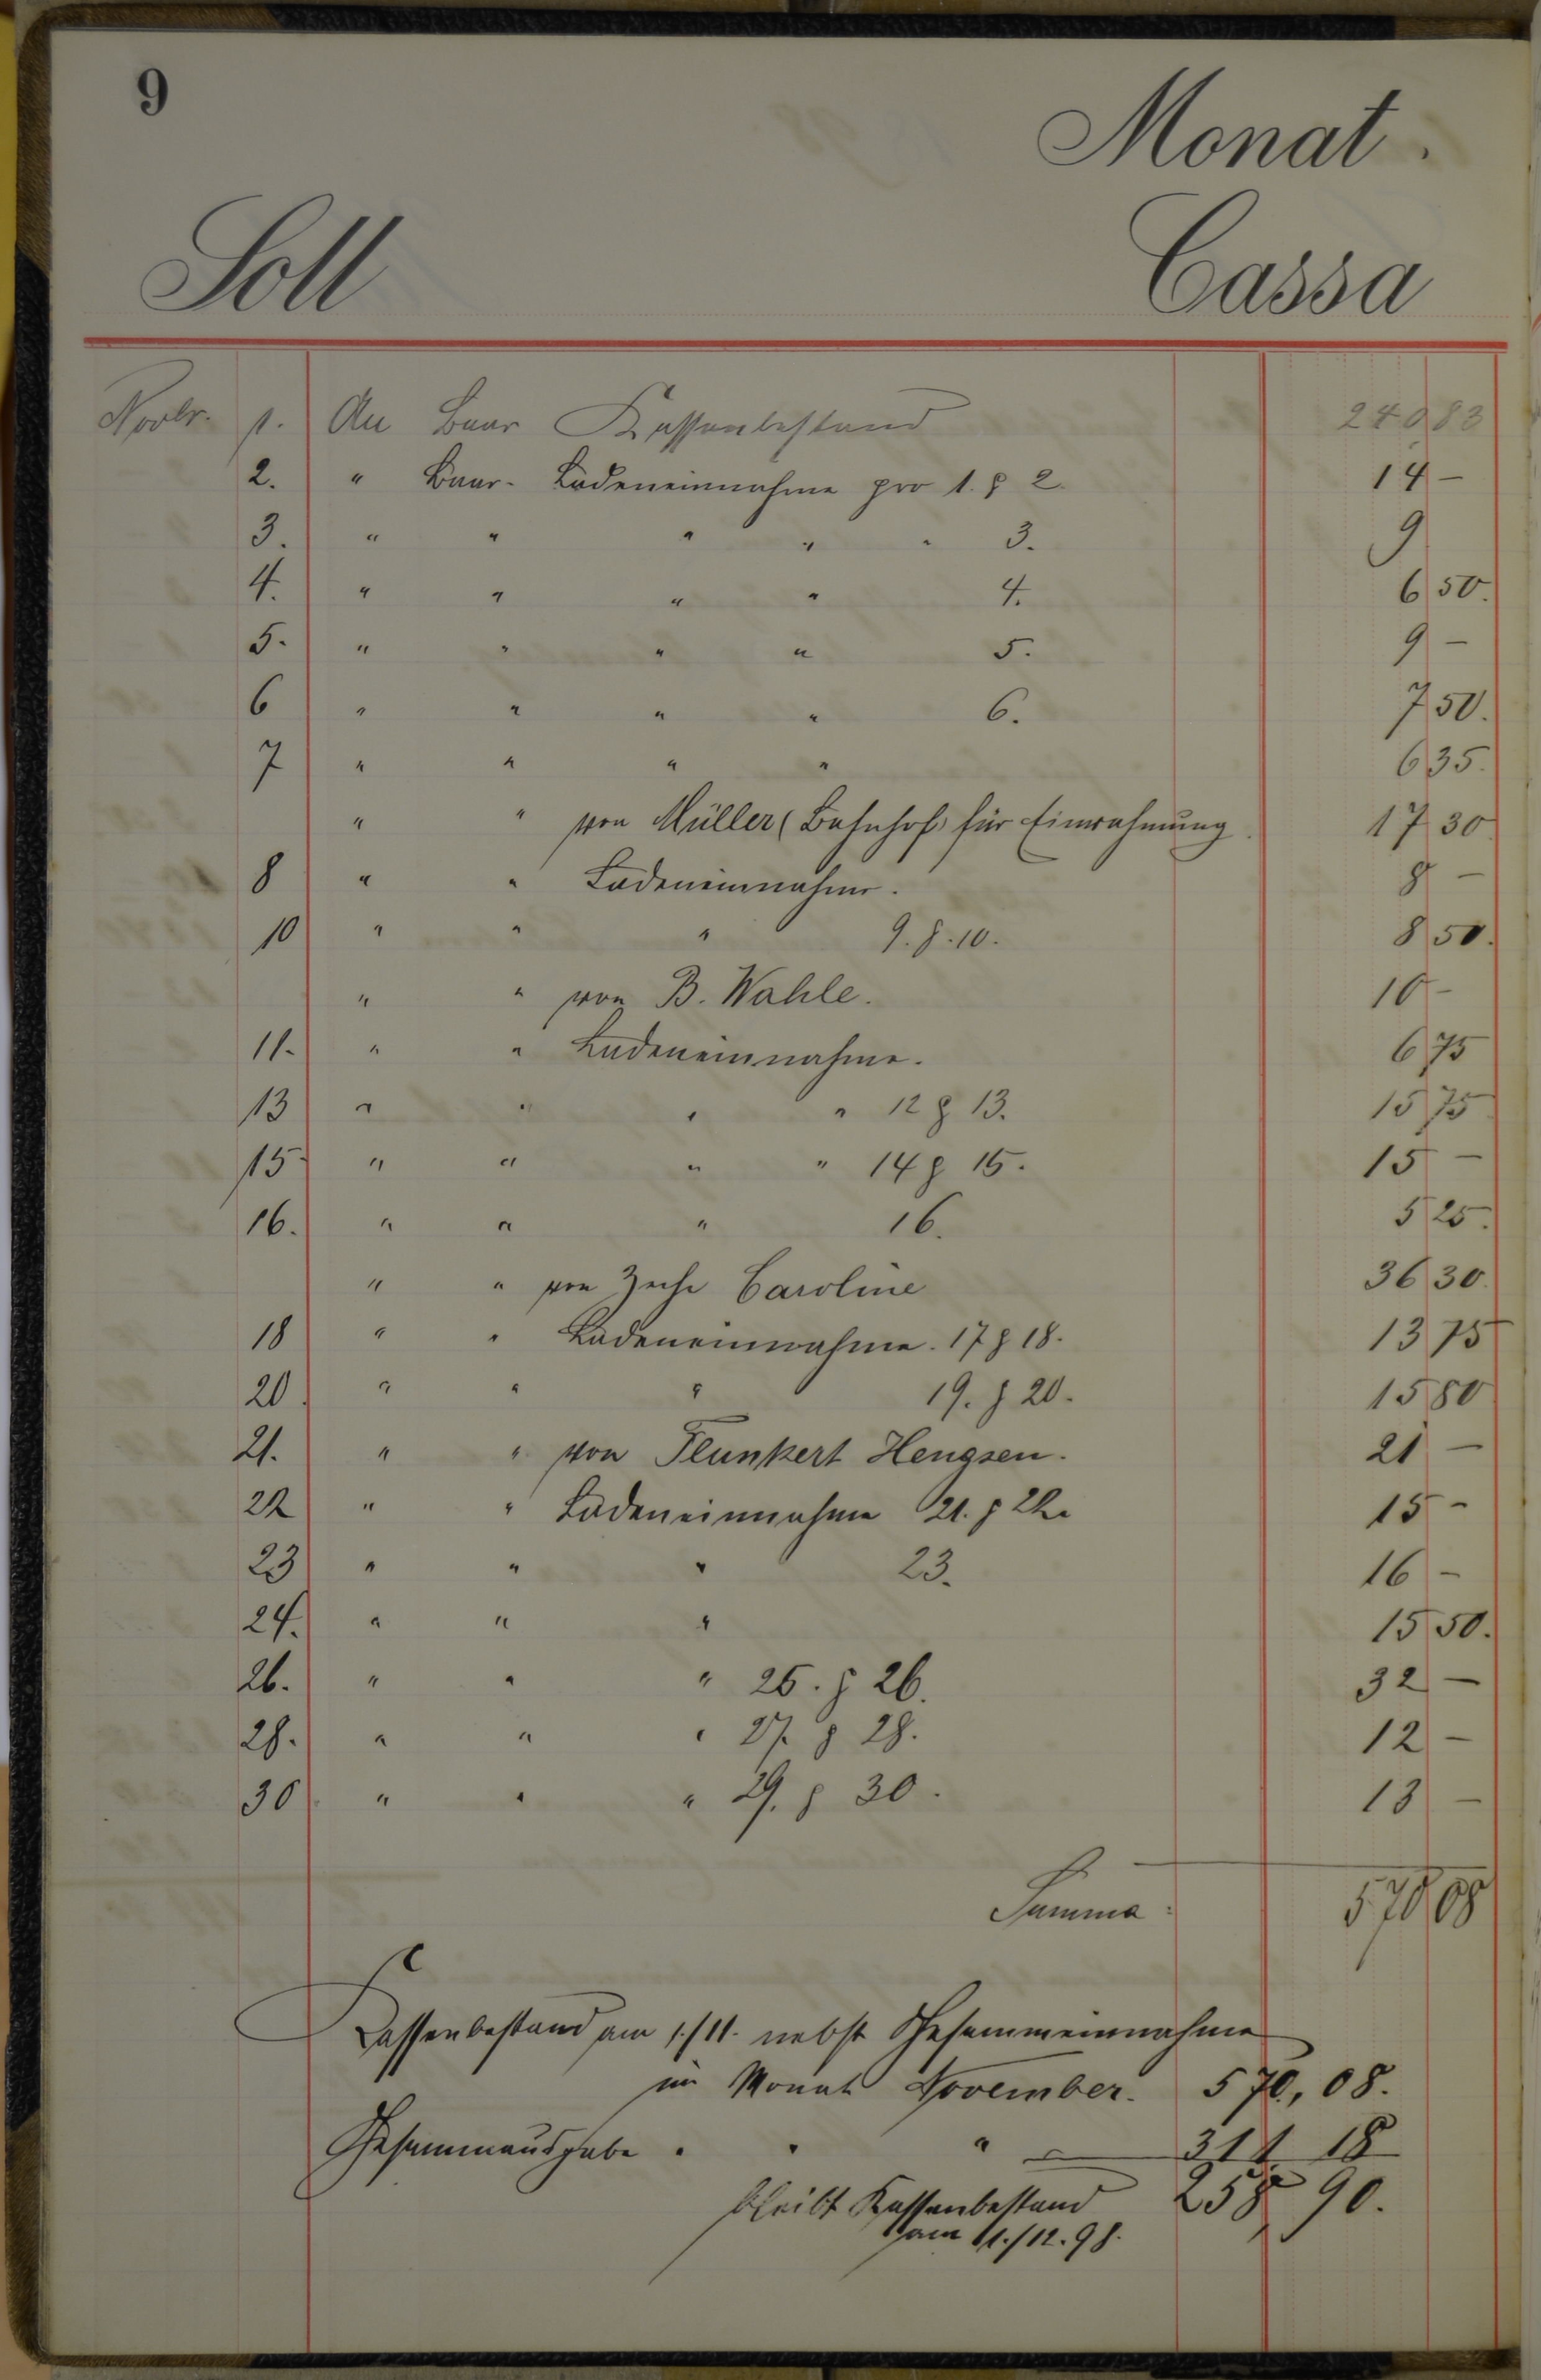 9
Monat.
Soll Cassa
Novbr. 1. An Baar Kassenbestand 240 83
2. " Baar- Ladeneinnahme pro 1. & 2. 14 –
3. " " " " " 3. 9
4. " " " " 4. 6 50.
5. " " " " 5. 9 –
6 " " " " 6. 7 50.
7 " " " " 6 35.
" " von Müller (Bahnhof) für Einrahmung 17 30
8 " " Ladeneinnahme. 8 –
10 " " " 9. & 10. 8 50.
" " von B. Wahle. 10 –
11. " " Ladeneinnahme. 6 75
13 " " " " 12 & 13. 15 75
15 " " " " 14 & 15. 15 –
16. " " " 16. 5 25.
" " von Zeche Caroline 36 30.
18 " " Ladeneinnahme. 17 & 18. 13 75
20 " " " 19. & 20. 15 80
21. " " von Flunkert Hengsen. 21 –
22 " " Ladeneinnahme 21. & 22. 15 –
23 " " " 23. 16 –
24. " " " 15 50.
26. " " " 25. & 26. 32 –
28. " " " 27. & 28. 12 –
30 " " " 29. & 30. 13 –
Summa: 570 08
Kassenbestand am 1./11. nebst Gesammeinnahme
im Monat November. 570,08.
Gesammausgabe " " " 311 18
bleibt Kassenbestand 258 90.
am 1./12.98.